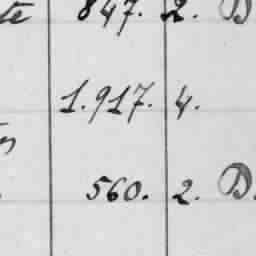 te 847. 2. D
1.917. 4.
560. 2. D.